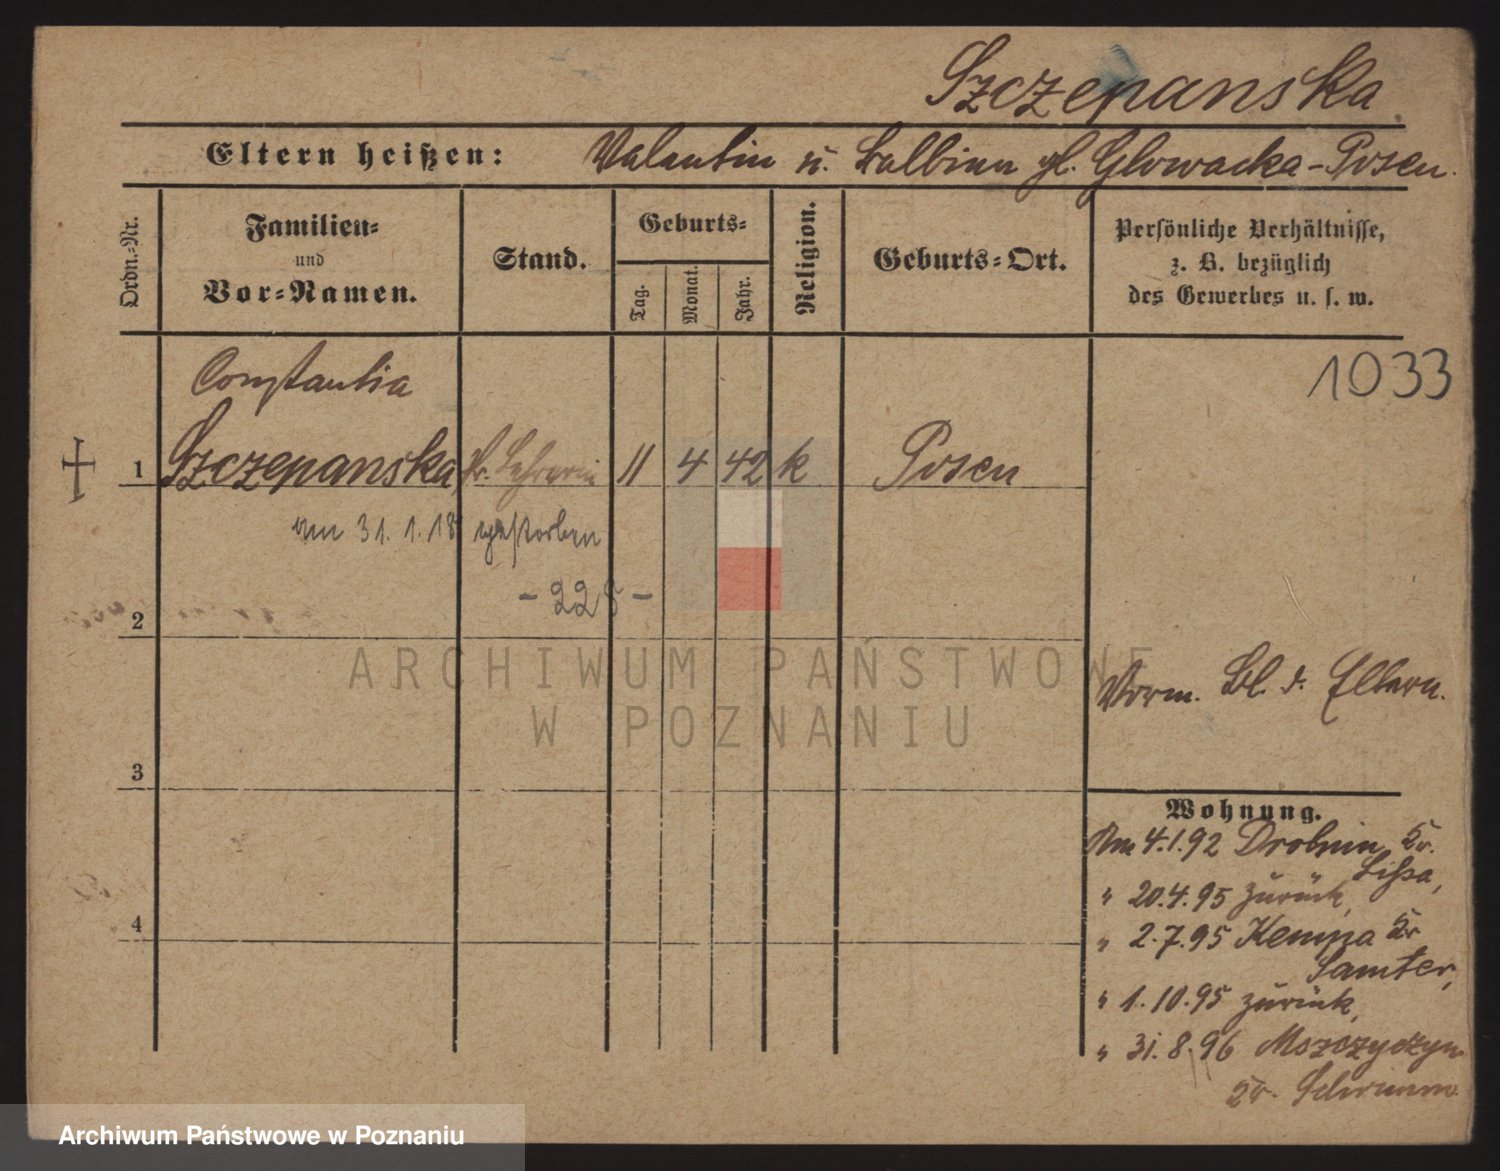 Szczepanska.
Eltern heißen: Valentin u. Balbina gb. Glowacka-Posen.
Ordn.-Nr.
Familien-
und
Vor-Namen.
Stand.
Geburts-
Tag.
Monat.
Jahr.
Religion.
Geburts-Ort.
Persönliche Verhältnisse,
z. B. bezüglich
des Gewerbes u. s. w.
1033
Constantia
1 Szczepanska fr. Lehrerin 11 4 42 k Posen
am 31.1.18 gestorben
- 228 -
2
Vorm. Bl. d. Eltern.
3
Wohnung.
Am 4.1.92 Drobnin Kr.
Lissa,
" 20.4.95 zurück,
4
" 2.7.95 Kempa Kr
Samter,
" 1.10.95 zurück,
" 31.8.96 Mszczyczyn
Kr. Schrimm
ARCHIWUM PAŃSTWOWE
W POZNANIU
Archiwum Państwowe w Poznaniu